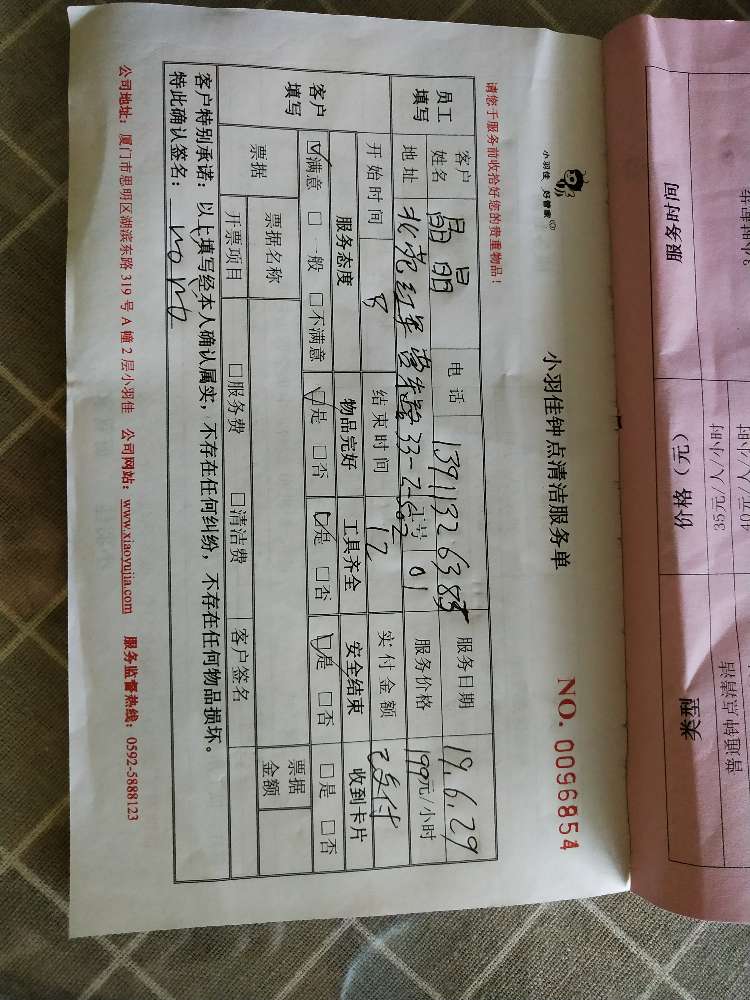 小羽佳 好管家
小羽佳钟点清洁服务单
NO. 0096854
请您于服务前收拾好您的贵重物品！
员工填写 客户姓名 晶晶 电话 服务日期 19.6.29
地址 工号 01 服务价格 199元/小时
开始时间 8 结束时间 12 实付金额 已支付
客户填写 服务态度 物品完好 工具齐全 安全结束 收到卡片
☑满意 □一般 □不满意 ☑是 □否 ☑是 □否 ☑是 □否 □是 □否
票据 票据名称 票据金额
开票项目 □服务费 □清洁费 客户签名
客户特别承诺：以上填写经本人确认属实，不存在任何纠纷，不存在任何物品损坏。
特此确认签名：
公司地址：厦门市思明区湖滨东路 319 号 A 幢 2 层小羽佳 公司网站：www.xiaoyujia.com 服务监督热线：0592-5888123
服务时间
价格（元）
35元/人/小时
类型